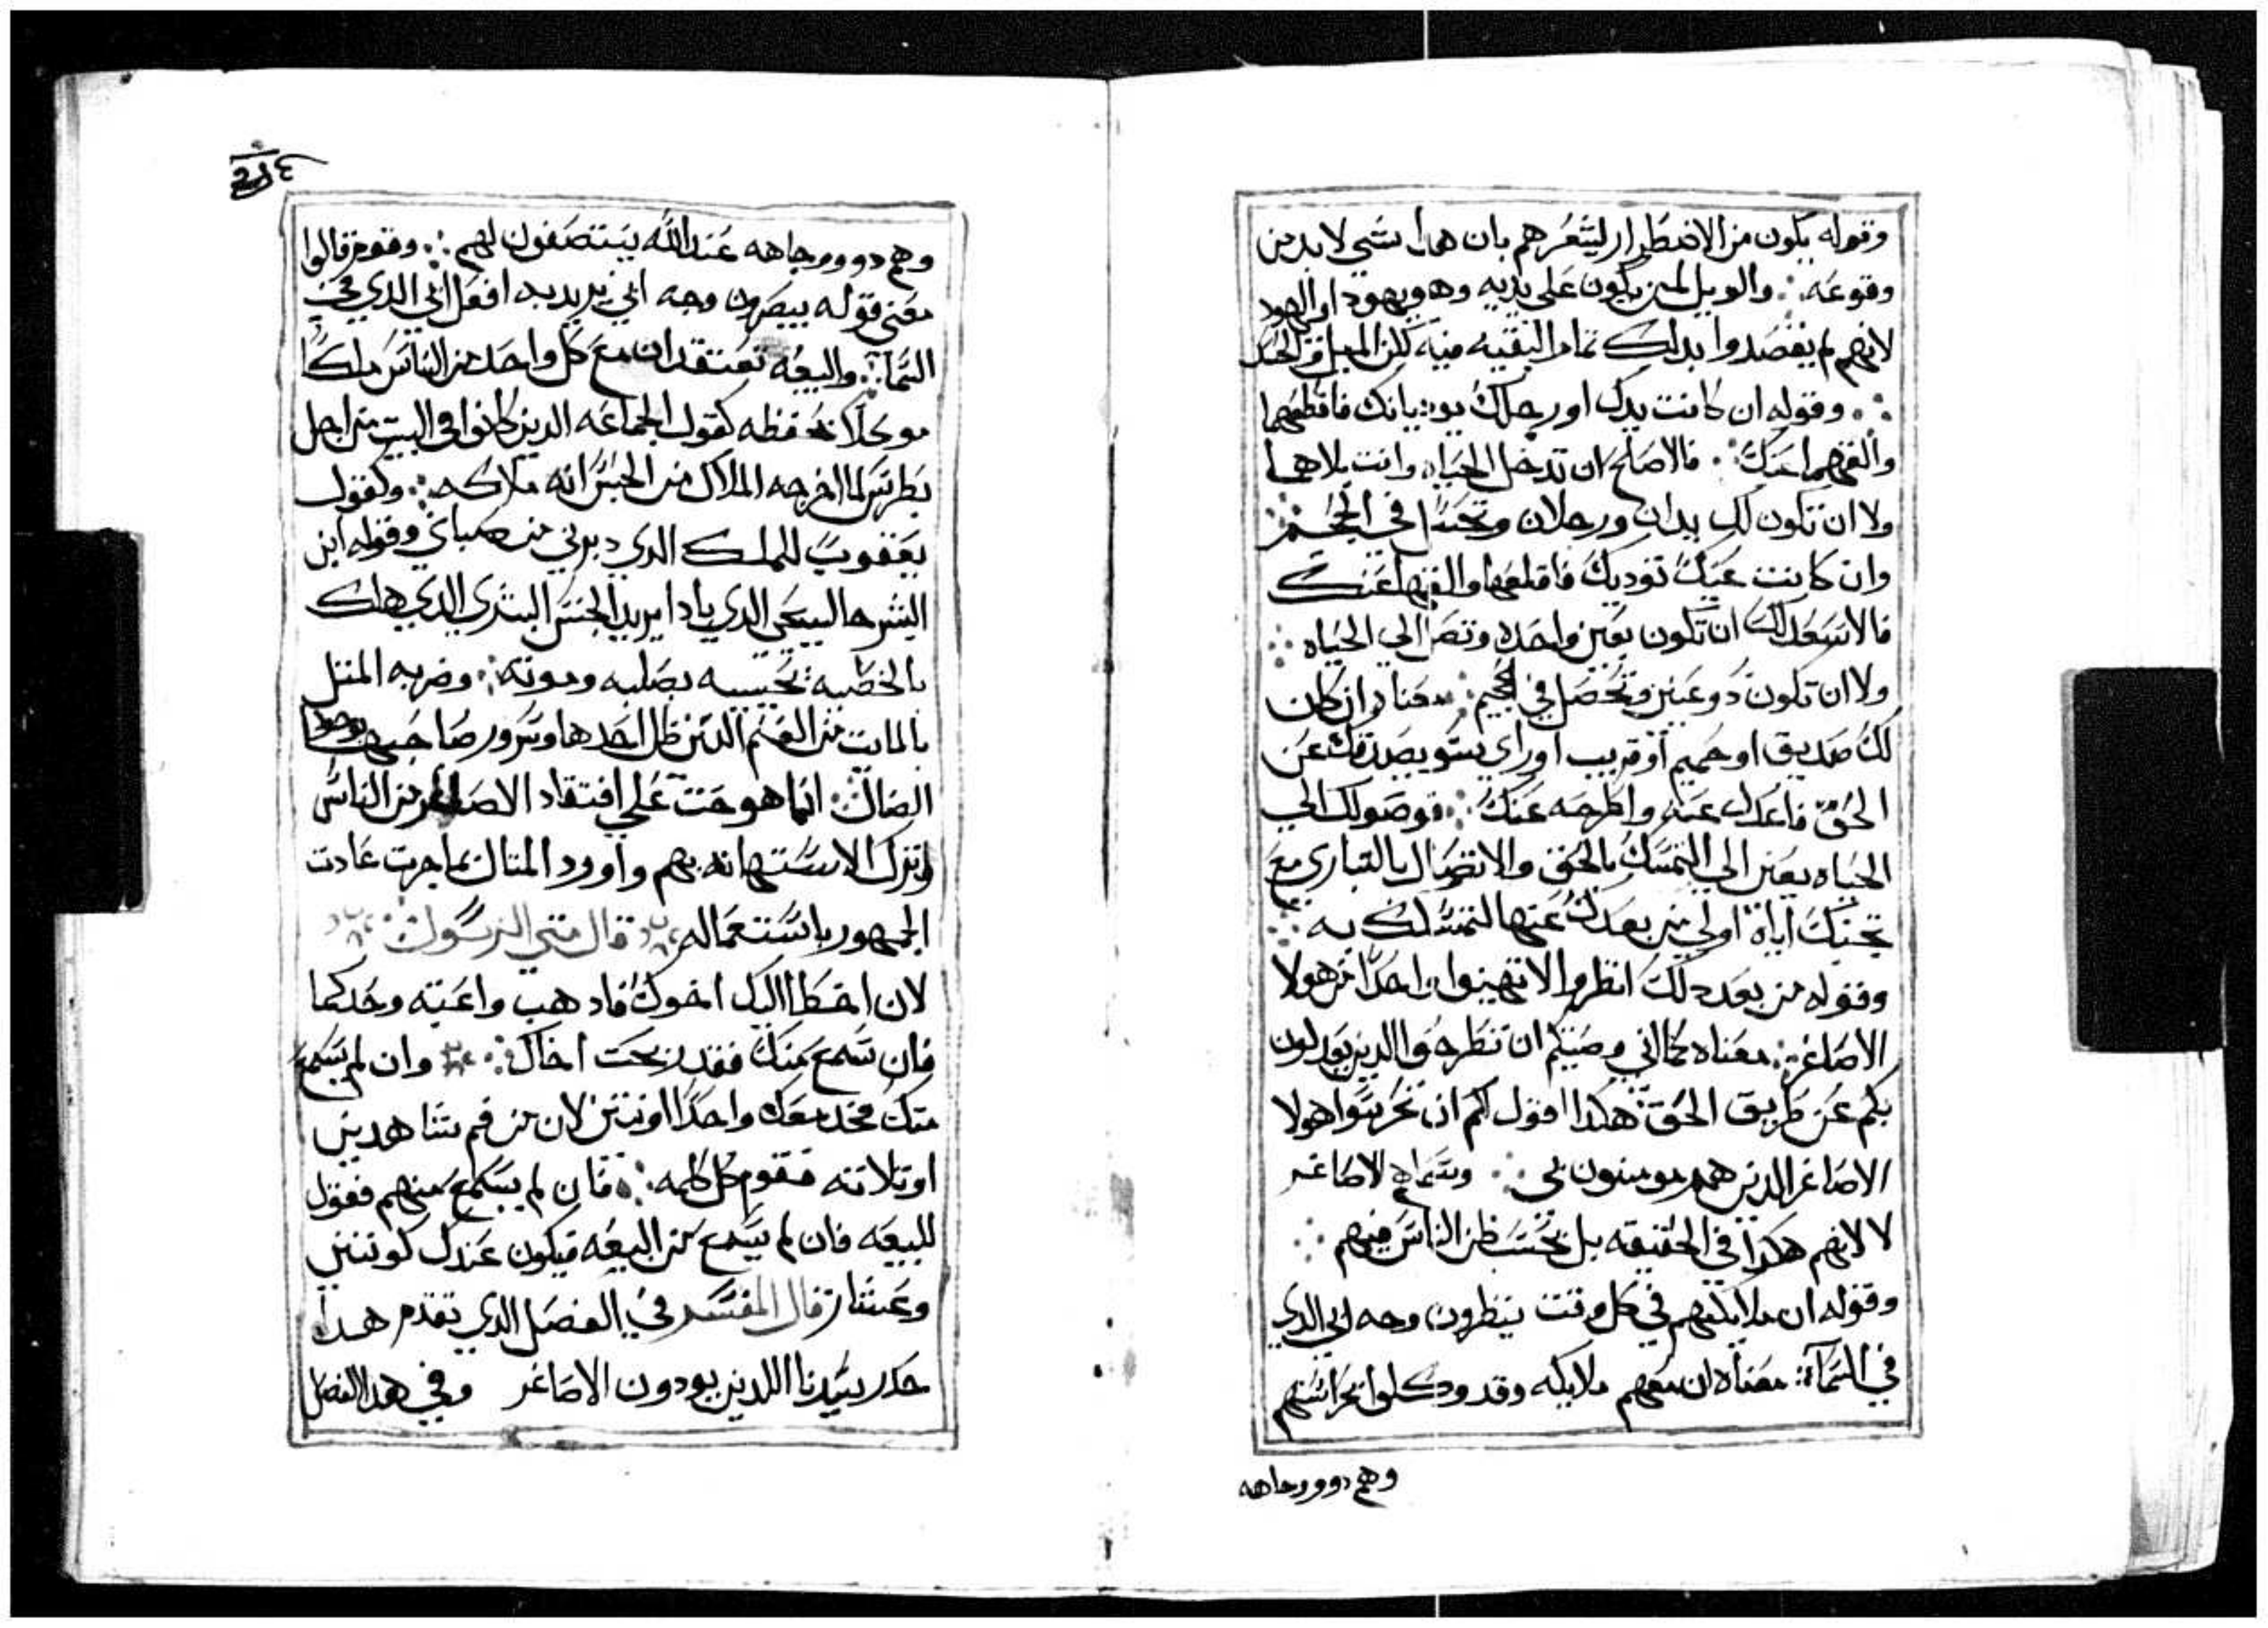 وقوله يكون من الاضطرار ليشعرهم بان هدا شي لابد من
وقوعه ∴ والويل لمن يكون على يديه وهو يهودا او اليهود
لانهم لم يقصدوا بدلك تمام البقيه فيه لكن الميل في الحسد
∴ وقوله ان كانت يدك او رجلك يوديانك فاقطعهما
والقهما عنك ∴ فالاصلح ان تدخل الحياه وانت بلاهما
ولا ان تكون لك يدان ورجلان وتحصل في الجحيم ∴
وان كانت عينك توديك فاقلعها والقها عنك
فالاسعد لك ان تكون بعين واحده وتصل الي الحياه ∴
ولا ان تكون دو عينين وتحصل في الجحيم ∴ معناه ان كان
لك صديق او حميم او قريب او راي سو يصدفك عن
الحق فاعدل عنه واطرحه عنك ∴ فوصولك الي
الحياه بعين الي التمسك بالحق والاتصال بالباري مع
تجنبك اياه اولي من بعدك عنها لتمسكك به ∴
وقوله من بعد دلك انظروا الا تهينوا احدا من هولا
الاصاغر ∴ معناه كما اني وصيتكم ان تطرحوا الدين يعدلون
بكم عن طريق الحق هكدا اقول لكم ان تحرسوا هولا
الاصاغر الدين هم مومنون بي ∴ وسماهم الاصاغر
لا لانهم هكدا في الحقيقه بل بحسب ظن الناس فيهم ∴
وقوله ان ملايكتهم في كل وقت ينظرون وجه ابي الدي
في السماء ∴ معناه ان معهم ملايكه وقد وكلوا بحراستهم
وهم دوو وجاهه
وهم دوو وجاهه عند الله يستصفون لهم ∴ وقوم قالوا
معني قوله يبصرون وجه ابي يريد به افعل ابي الدي في
السما ∴ والبيعه تعتقد ان مع كل واحد من الناس ملاكا
موكلا بحفظه كقول الجماعه الدين كانوا في البيت من اجل
بطرس لما اخرجه الملاك من الحبس انه ملاكه ∴ وكقول
يعقوب للملك الدي دبرني من صباي وقوله ابن
البشر جا ليحيي الدي باد يريد الجنس البشري الدي هلك
بالخطيه تحييه بصلبه وموته ∴ وضربه المثل
بالمايت من الغنم التي ظل احدها وسرور صاحبها بوجود
الضال ∴ انما هو حث علي افتقاد الاصاغر من الناس
وترك الاستهانه بهم واورد المتال بما جرت عادت
الجمهور باستعماله ∴ قال متي الرسول ∴
لان اخطا اليك اخوك فادهب واعتبه وحدكما
فان سمع منك فقد ربحت اخاك ∴ وان لم يسمع
منك فخد معك واحدا او اتنين لان من فم شاهدين
او تلاته تقوم كل كلمه ∴ فان لم يسمع منهم فقول
للبيعه فان لم يسمع من البيعه فيكون عندك كوتني
وعشار قال المفسر في الفصل الدي تقدم هدا
حدر سيدنا اللدين يودون الاصاغر وفي هدا الفصل